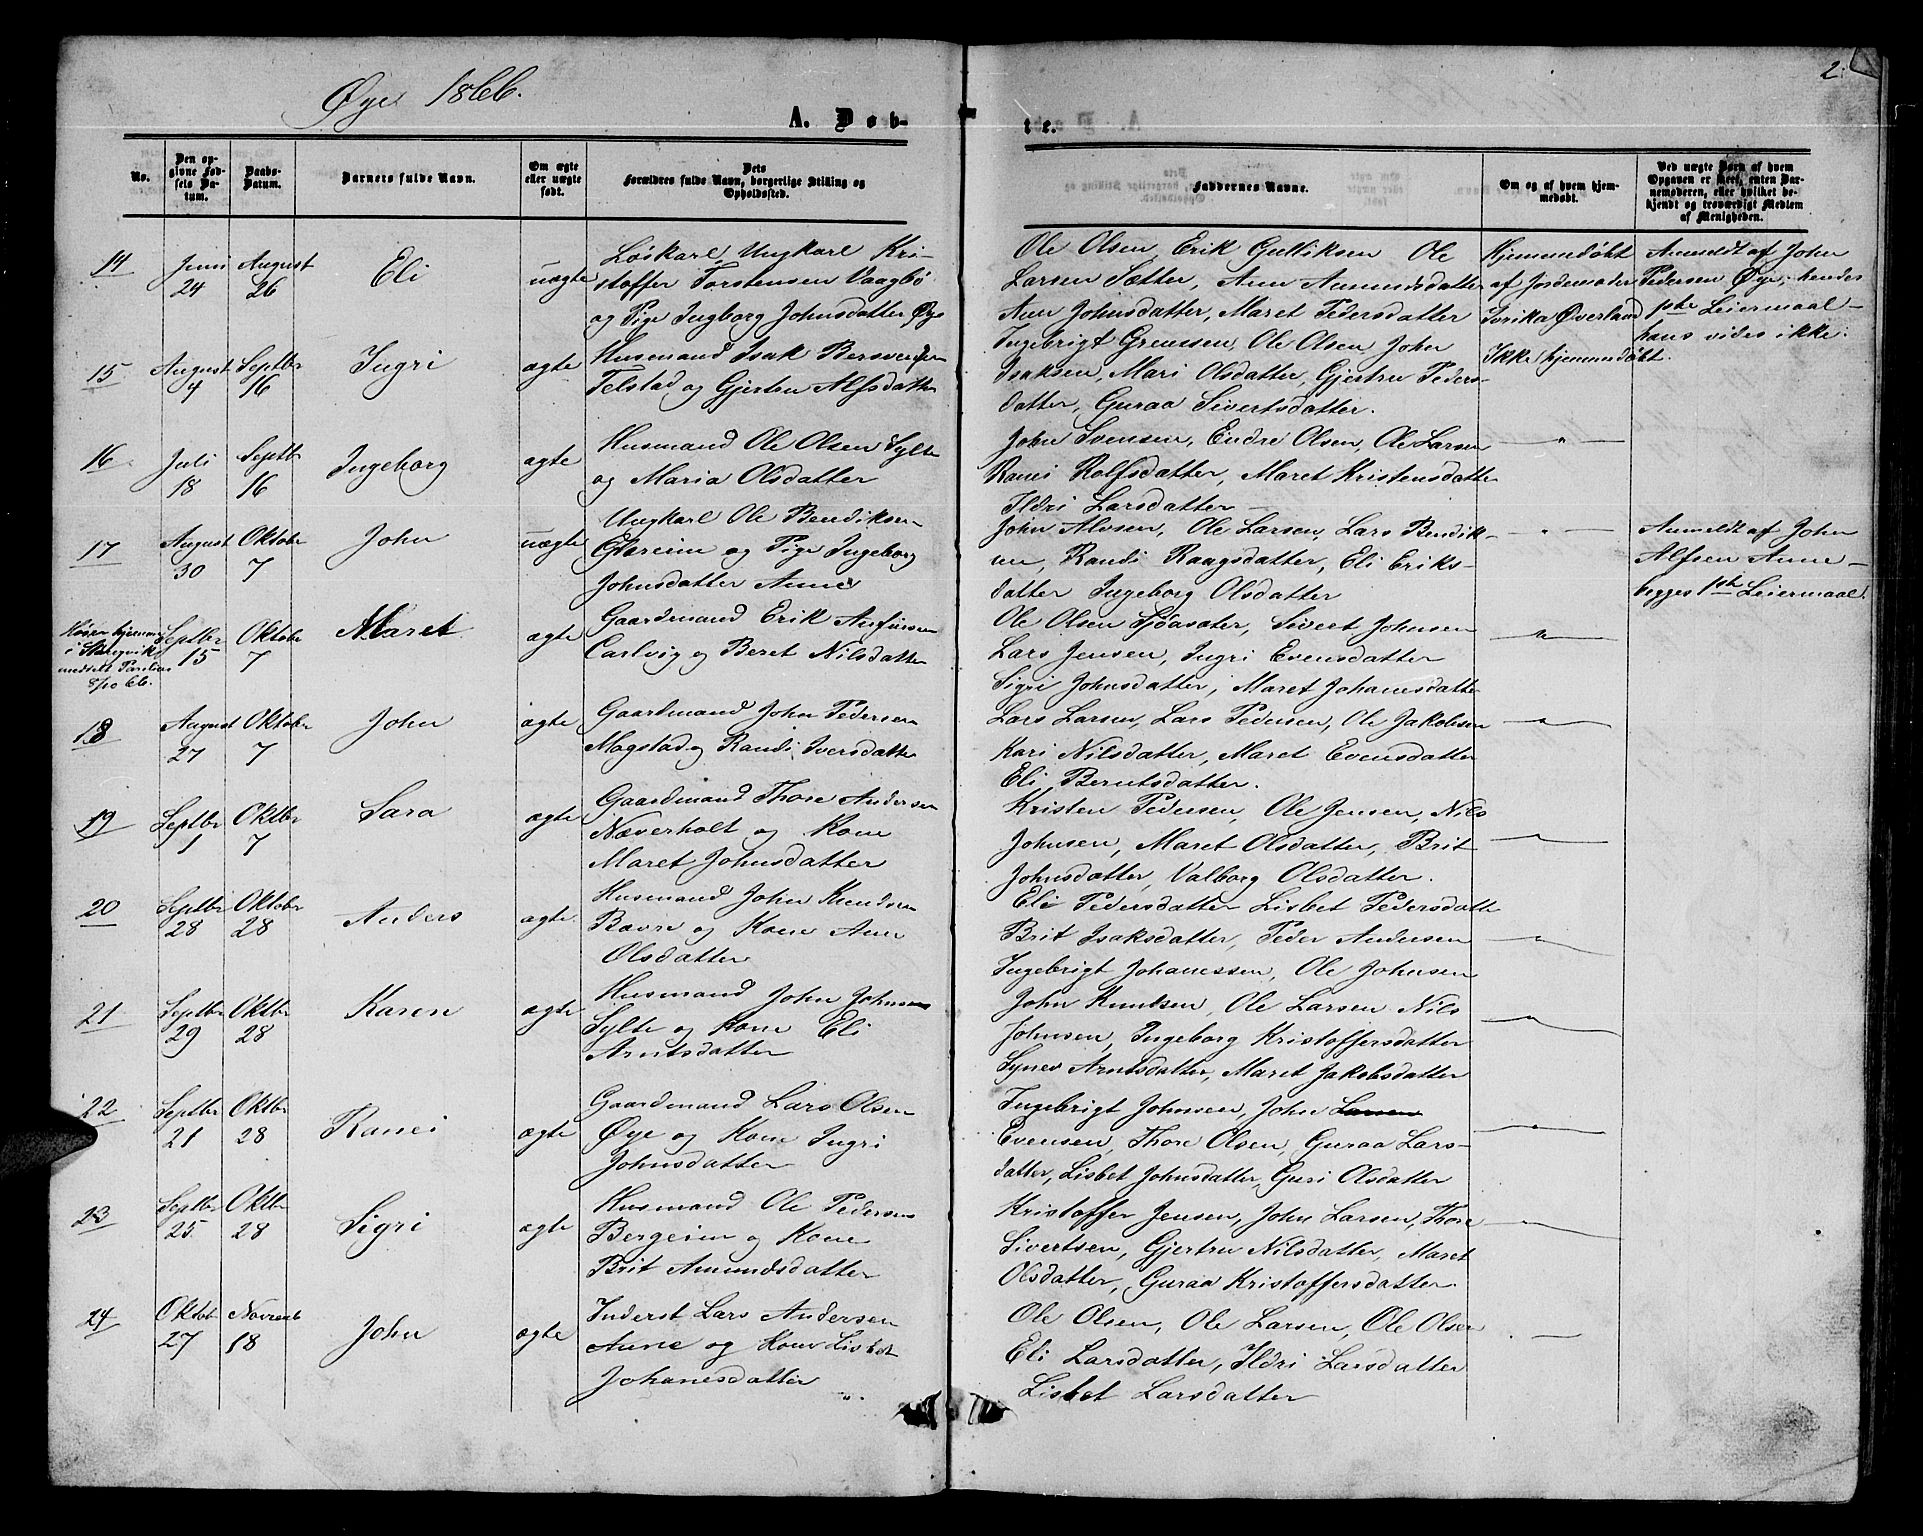 Øye 1866.
2.
A. Døb-
te.
No.
Den op-
givne Fød-
sels Da-
tum.
Daabs-
Datum.
Barnets fulde Navn.
Om ægte
eller uægte
født.
Dets
Forældres fulde Navn, borgerlige Stilling og
Opholdssted.
Faddernes Navne.
Om og af hvem hjem-
medøbt.
Ved uægte Børn af hvem
Opgaven er skeet, enten Bar-
nemoderen, eller hvilket be-
kjendt og troværdigt Medlem
af Menigheden.
14
Juni
24
August
26
Eli
uægte
Løskarl, Ungkarl Kri-
stoffer Torstensen Vaagbø
og Pige Ingborg Johnsdatter Øye
Ole Olsen, Erik Gulliksen Ole
Larsen Sætter, Ane Amundsdatter
Ane Johnsdatter, Maret Pedersdatter
Hjemmedøbt
af Jordemoder
Overland
Anmeldt af John
Pedersen Øye, hendes
1ste Leiermaal -
hans vides ikke.
15
August
4
Septbr
16
Ingri
ægte
Husmand Isak Bersvendsen
Telstad og Gjertru Alfsdatter
Ingebrigt Grenssen, Ole Olsen, John
Isaksen, Mari Olsdatter, Gjertru Peders-
datter, Guraa Sivertsdatter.
Ikke hjemmedøbt.
16
Juli
18
Septbr
16
Ingeborg
ægte
Husmand Ole Olsen Sylte
og Maria Olsdatter
John Svensen, Endre Olsen, Ole Larsen
Ranei Rolfsdatter, Maret Kristensdatter
Ildri Larsdatter -
- " -
17
August
30
Oktobr
7
John
uægte
Ungkarl Ole Bendiksen
Glæreim og Pige Ingeborg
Johnsdatter Aune
John Alvsen, Ole Larsen, Lars Bendik-
sen, Randi Raagsdatter, Eli Eriks-
datter Ingeborg Olsdatter
- " -
Anmeldt af John
Alfsen Aune -
begges 1ste Leiermaal.
8/10 66.
Septbr
15
Oktobr
7
Maret
ægte
Gaardmand Erik Anfinsen
Carlvig og Beret Nilsdatter
Ole Olsen Sjøasæter, Sivert Johnsen
Lars Jensen, Ingri Evensdatter
Sigri Johnsdatter, Maret Johanesdatter
- " -
18
August
27
Oktobr
7
John
ægte
Gaardmand John Pedersen
Mogstad og Randi Iversdatter
Lars Larsen, Lars Pedersen, Ole Jakobsen
Kari Nilsdatter, Maret Evensdatter
Eli Berntsdatter.
- " -
19
Septbr
1
Oktbr
7
Sara
ægte
Gaardmand Thore Andersen
Næverholt og Kone
Maret Johnsdatter
Kristen Pedersen, Ole Jensen, Nils
Johnsen, Maret Olsdatter, Brit
Johnsdatter, Valborg Olsdatter.
- " -
20
Septbr
28
Oktobr
28
Anders
ægte
Husmand John Knudsen
Bævre og Kone Ane
Olsdatter
Eli Pedersdatter Lisbet Pedersdatter
Brit Isaksdatter, Peder Andersen
Ingebrigt Johanessen, Ole Johnsen
- " -
21
Septbr
29
Oktbr
28
Karen
ægte
Husmand John Johnsen
Sylte og Kone Eli
Arntsdatter
John Knutsen, Ole Larsen Nils
Johnsen, Ingeborg Kristoffersdatter
Synev Arntsdatter, Maret Jakobsdatter
- " -
22
Septbr
21
Oktbr
28
Ranei
ægte
Gaardmand Lars Olsen
Øye og Kone Ingri
Johnsdatter
Ingebrigt Johnsen, John Larsen
Evensen, Thore Olsen, Guraa Lars-
datter, Lisbet Johnsdatter, Guri Olsdatter
- " -
23
Septbr
25
Oktbr
28
Sigri
ægte
Husmand Ole Pedersen
Bergeim og Kone
Brit Amundsdatter
Kristoffer Jensen, John Larsen, Thore
Sivertsen, Gjertru Nilsdatter, Maret
Olsdatter, Guraa Kristoffersdatter
- " -
24
Oktob
27
Novemb
18
John
ægte
Inderst Lars Andersen
Aune og Kone Lisbet
Johanesdatter
Ole Olsen, Ole Larsen, Ole Olsen
Eli Larsdatter, Ildri Larsdatter
Lisbet Larsdatter